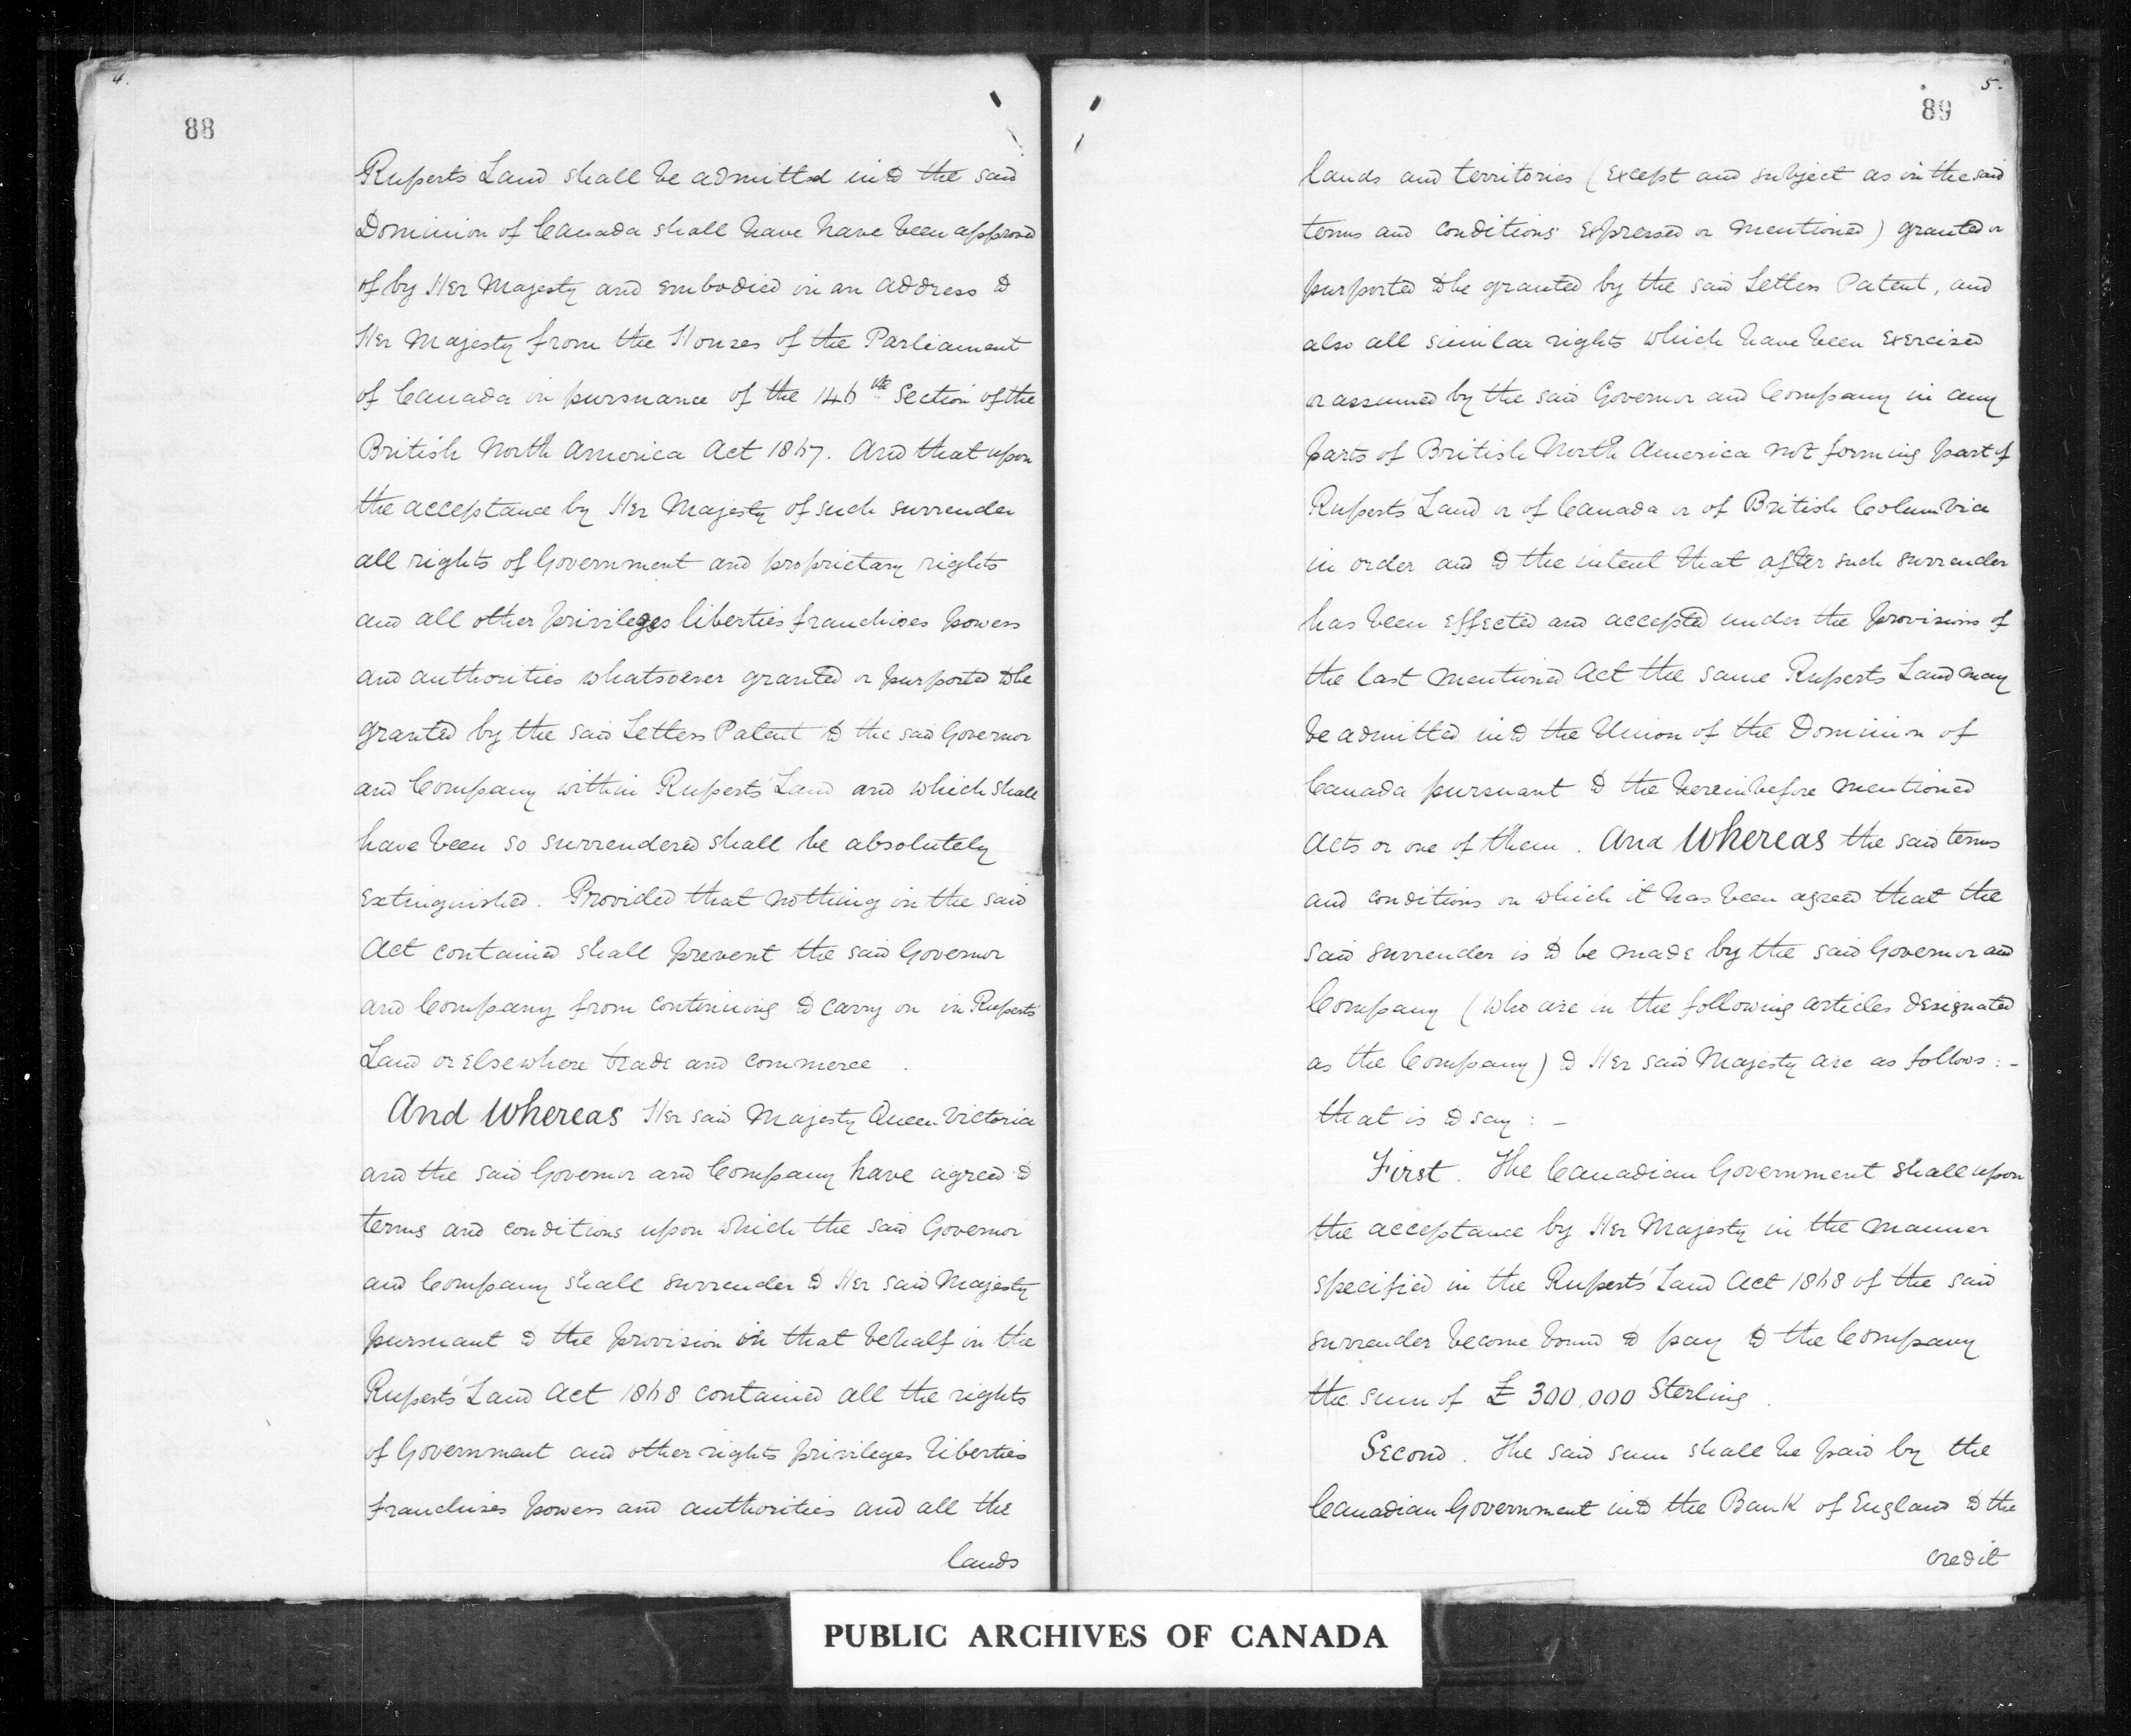 4.
88
Ruperts Land shall be admitted into the said
Dominion of Canada shall have have been approved
of by Her Majesty and embodied in an address to
Her Majesty from the Houses of the Parliament
of Canada in pursuance of the 146th Section of the
British North America Act 1867. And that upon
the acceptance by Her Majesty of such surrender
all rights of Government and proprietary rights
and all other privileges liberties franchises powers
and authorities whatsoever granted or purported to be
granted by the said Letters Patent to the said Governor
and Company within Ruperts' Land and which shall
have been so surrendered shall be absolutely
extinguished. Provided that nothing in the said
Act contained shall prevent the said Governor
and Company from continuing to carry on in Ruperts'
Land or elsewhere trade and commerce.
And Whereas Her said Majesty Queen Victoria
and the said Governor and Company have agreed to
terms and conditions upon which the said Governor
and Company shall surrender to Her said Majesty
pursuant to the provision in that behalf in the
Ruperts' Land Act 1868 contained all the rights
of Government and other rights privileges liberties
franchises powers and authorities and all the
lands
5.
89
lands and territories (except and subject as in the said
terms and conditions expressed or mentioned) granted or
purported to be granted by the said Letters Patent, and
also all similar rights which have been exercised
or assumed by the said Governor and Company in any
parts of British North America not forming part of
Ruperts' Land or of Canada or of British Columbia
in order and to the intent that after such surrender
has been effected and accepted under the provisions of
the last mentioned Act the same Ruperts Land may
be admitted into the Union of the Dominion of
Canada pursuant to the hereinbefore mentioned
Acts or one of them. And Whereas the said terms
and conditions on which it has been agreed that the
said surrender is to be made by the said Governor and
Company (who are in the following articles designated
as the Company) to Her said Majesty are as follows:-
that is to say:-
First. The Canadian Government shall upon
the acceptance by Her Majesty in the manner
specified in the Ruperts' Land Act 1868 of the said
surrender become bound to pay to the Company
the sum of £ 300,000 Sterling.
Second. The said sum shall be paid by the
Canadian Government into the Bank of England to the
credit
PUBLIC ARCHIVES OF CANADA